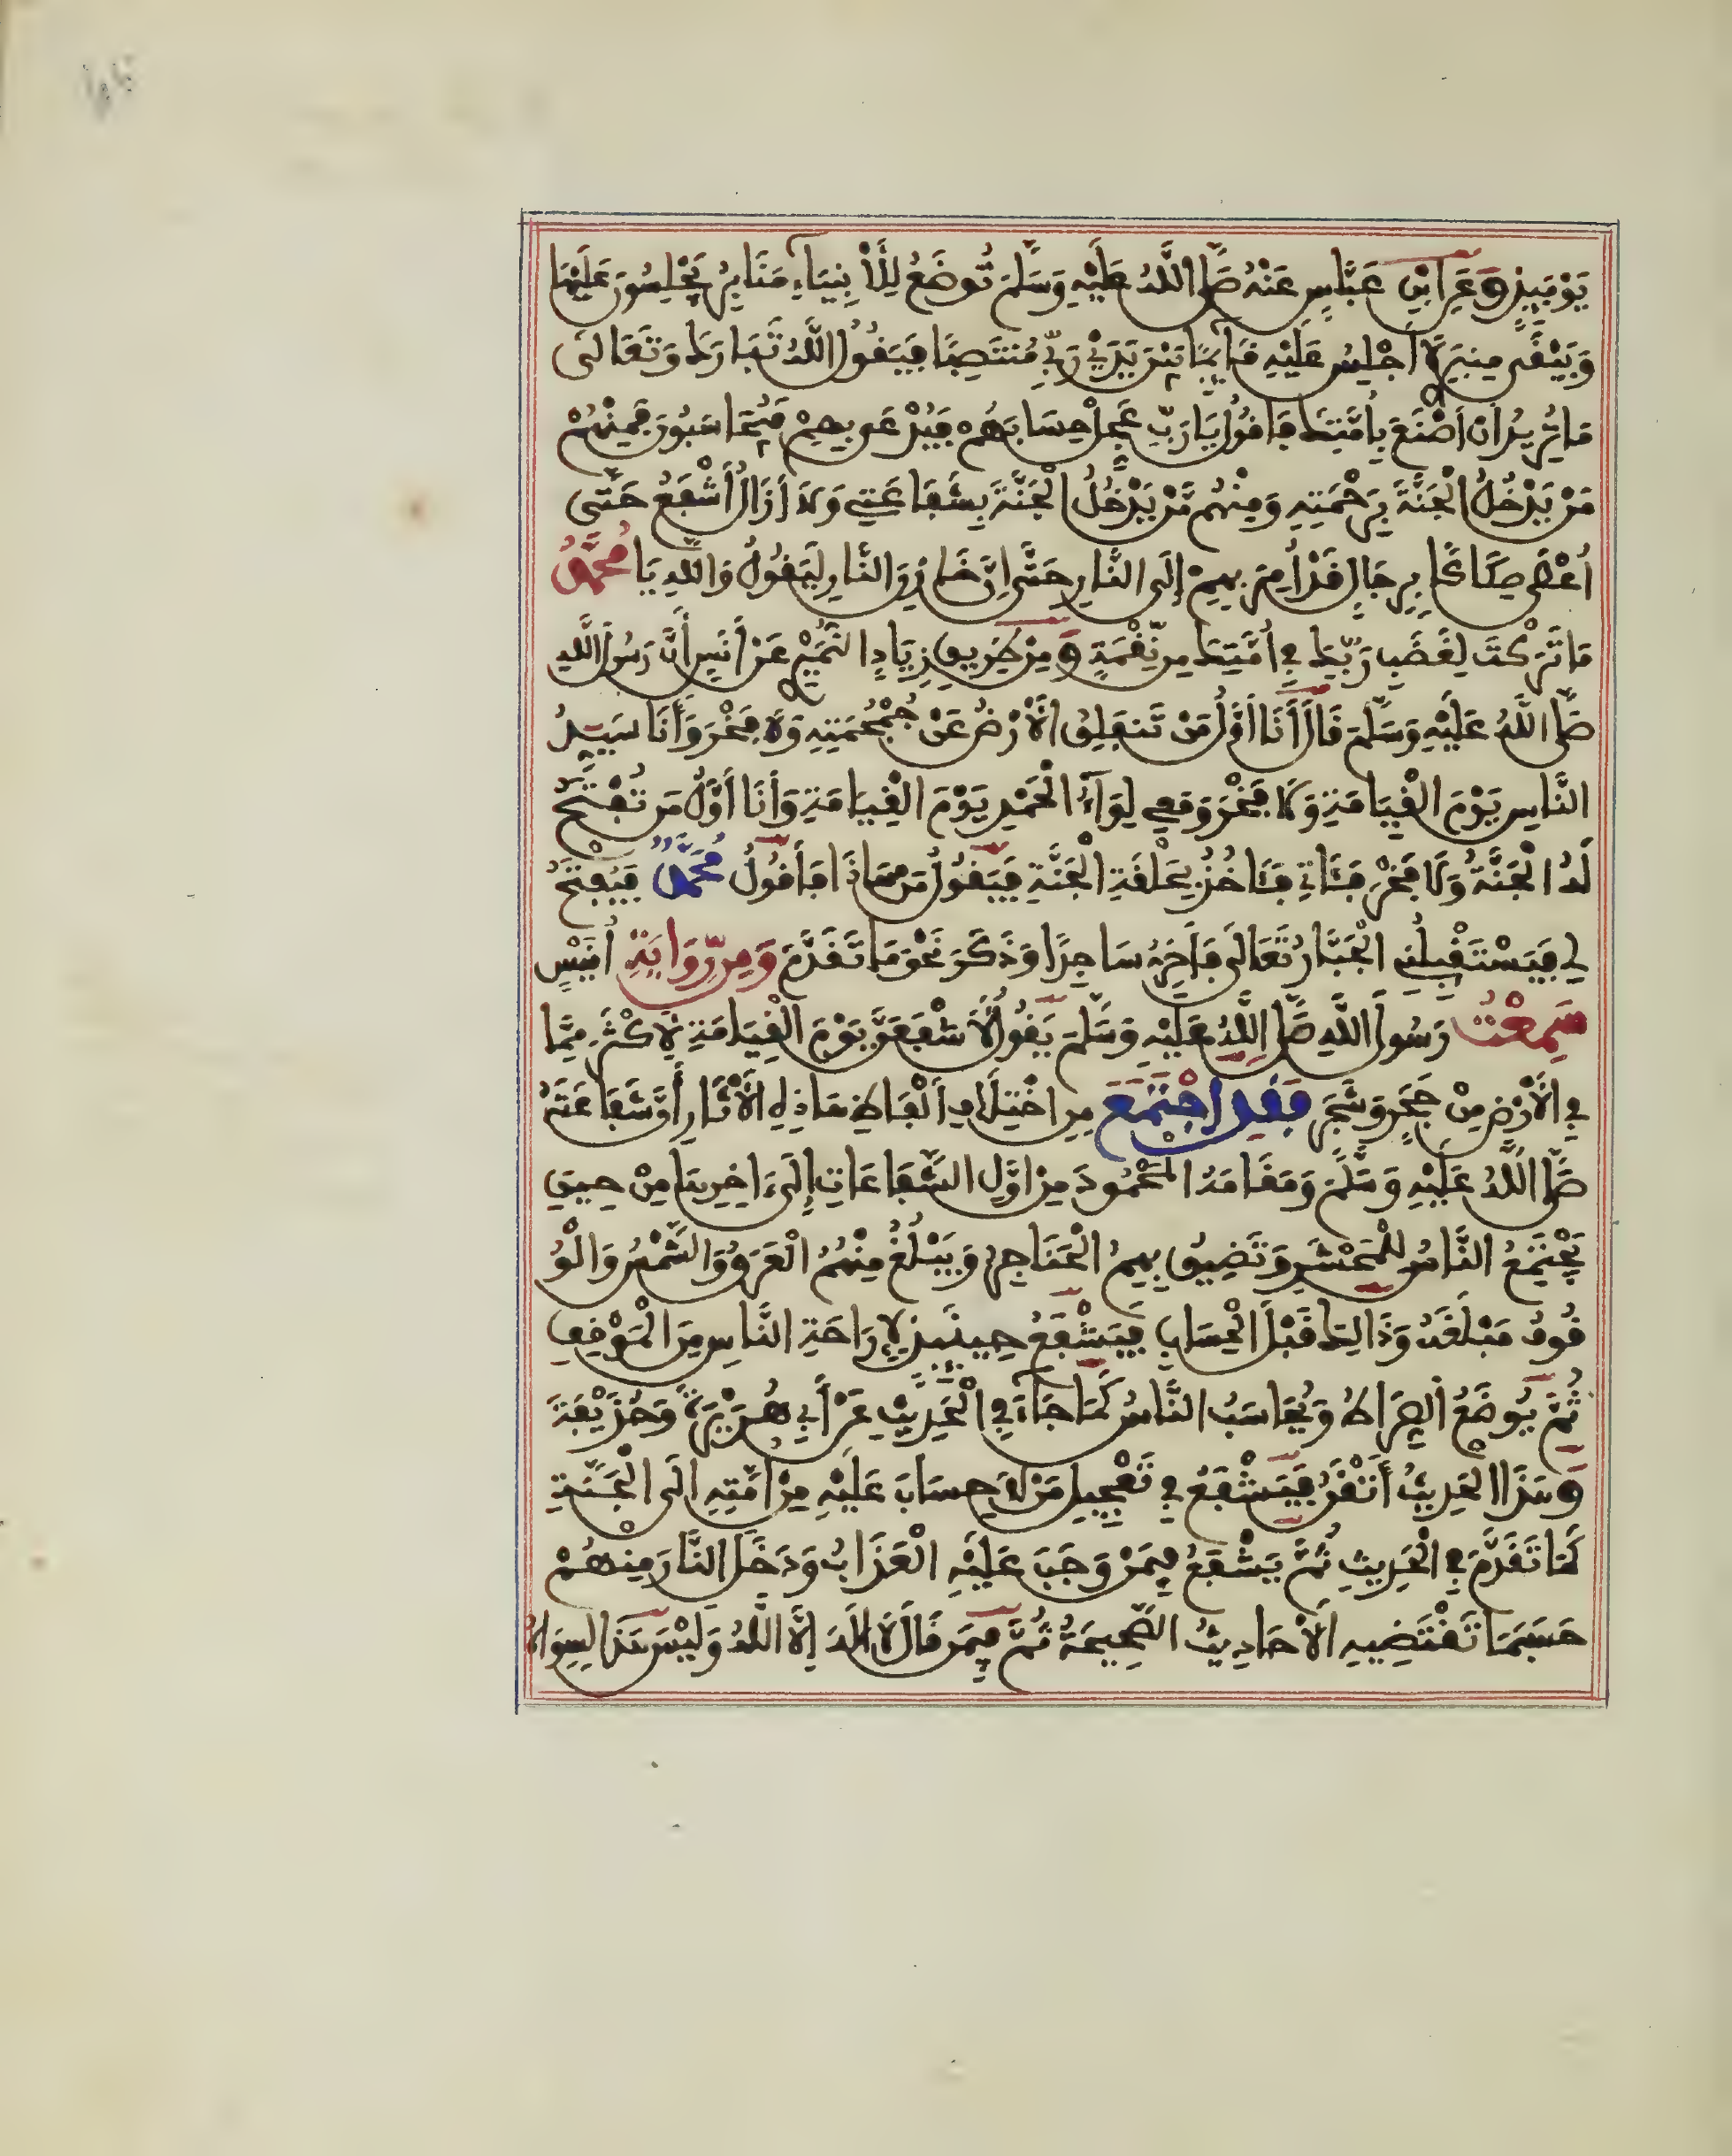 يَوْمَئِذٍ وَعَنِ ابْنِ عَبَّاسٍ عَنْهُ صَلَّى اللَّهُ عَلَيْهِ وَسَلَّمَ تُوضَعُ لِلْأَنْبِيَاءِ مَنَابِرُ يَجْلِسُونَ عَلَيْهَا
وَيَبْقَى مِنْبَرِي لَا أَجْلِسُ عَلَيْهِ قَائِمًا بَيْنَ يَدَيْ رَبِّي مُنْتَصِبًا فَيَقُولُ اللَّهُ تَبَارَكَ وَتَعَالَى
مَا تُرِيدُ أَنْ أَصْنَعَ بِأُمَّتِكَ فَأَقُولُ يَا رَبِّ عَجِّلْ حِسَابَهُمْ فَيُدْعَى بِهِمْ فَيُحَاسَبُونَ فَمِنْهُمْ
مَنْ يَدْخُلُ الْجَنَّةَ بِرَحْمَتِهِ وَمِنْهُم مَّنْ يَدْخُلُ الْجَنَّةَ بِشَفَاعَتِي وَلَا أَزَالُ أَشْفَعُ حَتَّى
أُعْطَى صِكَاكًا بِرِجَالٍ قَدْ أُمِرَ بِهِمْ إِلَى النَّارِ حَتَّى إِنَّ خَازِنَ النَّارِ لَيَقُولُ وَاللَّهِ يَا مُحَمَّدُ
مَا تَرَكْتَ لِغَضَبِ رَبِّكَ فِي أُمَّتِكَ مِن نِّقْمَةٍ وَمِنْ طَرِيقِ زِيَادٍ النُّمَيْرِيِّ عَنْ أَنَسٍ أَنَّ رَسُولَ اللَّهِ
صَلَّى اللَّهُ عَلَيْهِ وَسَلَّمَ قَالَ أَنَا أَوَّلُ مَنْ تَنْفَلِقُ الْأَرْضُ عَنْ جُمْجُمَتِهِ وَلَا فَخْرَ وَأَنَا سَيِّدُ
النَّاسِ يَوْمَ الْقِيَامَةِ وَلَا فَخْرَ وَمَعِي لِوَاءُ الْحَمْدِ يَوْمَ الْقِيَامَةِ وَأَنَا أَوَّلُ مَن تُفْتَحُ
لَهُ الْجَنَّةُ وَلَا فَخْرَ فَئَاتِي فَئَاخُذُ بِحَلْقَةِ الْجَنَّةِ فَيَقُولُ مَن هَاذَا فَأَقُولُ مُحَمَّدٌ فَيُفْتَحُ
لِي فَيَسْتَقْبِلُنِي الْجَبَّارُ تَعَالَى فَأَخِرُّ سَاجِدًا وَذَكَرَ نَحْوَ مَا تَقَدَّمَ وَمِن رِّوَايَةِ أُنَيْسٍ
سَمِعْتُ رَسُولَ اللَّهِ صَلَّى اللَّهُ عَلَيْهِ وَسَلَّمَ يَقُولُ لَأَشْفَعَنَّ يَوْمَ الْقِيَامَةِ لِأَكْثَرَ مِمَّا
فِي الْأَرْضِ مِنْ حَجَرٍ وَشَجَرٍ فَقَدِ اجْتَمَعَ مِنِ اخْتِلَافِ أَلْفَاظِ هَاذِهِ الْآثَارِ أَنَّ شَفَاعَتَهُ
صَلَّى اللَّهُ عَلَيْهِ وَسَلَّمَ وَمَقَامَهُ الْمَحْمُودَ مِنْ أَوَّلِ الشَّفَاعَاتِ إِلَى ءَاخِرِهَا مِنْ حِينِ
يَجْتَمِعُ النَّاسُ لِلْمَحْشَرِ وَتَضِيقُ بِهِمُ الْحَنَاجِرُ وَيَبْلُغُ مِنْهُمُ الْعَرَقُ وَالشَّمْسُ وَالْوُ
قُوفُ مَبْلَغَهُ وَذَالِكَ قَبْلَ الْحِسَابِ فَيَشْفَعُ حِينَئِذٍ لِإِرَاحَةِ النَّاسِ مِنَ الْمَوْقِفِ
ثُمَّ يُوضَعُ الصِّرَاطُ وَيُحَاسَبُ النَّاسُ كَمَا جَاءَ فِي الْحَدِيثِ عَنْ أَبِي هُرَيْرَةَ وَحُذَيْفَةَ
وَهَذَا الْحَدِيثُ أَتْقَنُ فَيَشْفَعُ فِي تَعْجِيلِ مَنْ لَا حِسَابَ عَلَيْهِ مِنْ أُمَّتِهِ إِلَى الْجَنَّةِ
كَمَا تَقَدَّمَ فِي الْحَدِيثِ ثُمَّ يَشْفَعُ فِيمَنْ وَجَبَ عَلَيْهِ الْعَذَابُ وَدَخَلَ النَّارَ مِنْهُمْ
حَسَبَمَا تَقْتَضِيهِ الْأَحَادِيثُ الصَّحِيحَةُ ثُمَّ فِيمَن قَالَ لَا إِلَهَ إِلَّا اللَّهُ وَلَيْسَ هَذَا لِسِوَاهُ